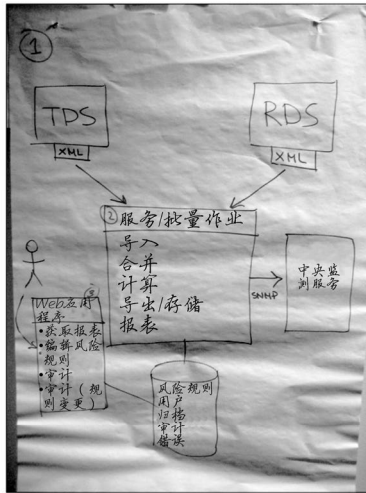 ①
TDS
XML
RDS
XML
② 服务/批量作业
导入
合并
计算
导出/存储
报表
SNMP
中央监
测服务
③
Web应用
程序
•获取报表
•编辑风险
规则
•审计
•审计（规
则变更）
风险规则
用户
归档
审计
错误